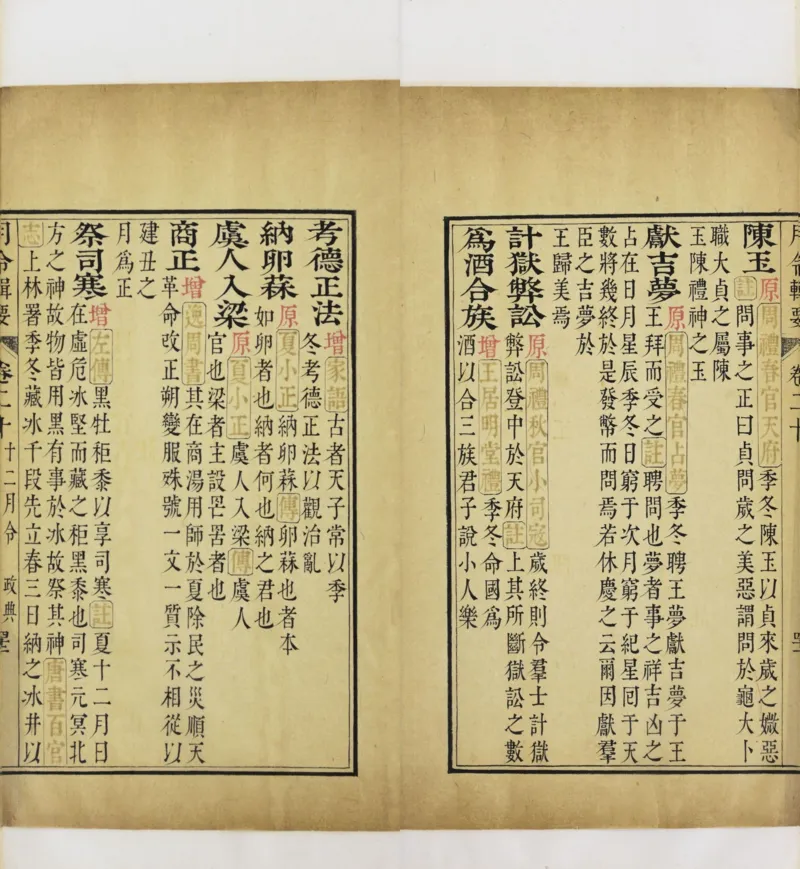 月令輯要 卷二十
陳玉原周禮春官天府季冬陳玉以貞來歲之媺惡
註問事之正曰貞問歲之美惡謂問於龜大卜
職大貞之屬陳
玉陳禮神之玉
獻吉夢原周禮春官占夢季冬聘王夢獻吉夢于王
王拜而受之註聘問也夢者事之祥吉凶之
占在日月星辰季冬日窮于次月窮于紀星囘于天
數將幾終於是發幣而問焉若休慶之云爾因獻羣
臣之吉夢於
王歸美焉
計獄弊訟原周禮秋官小司寇歲終則令羣士計獄
弊訟登中於天府註上其所斷獄訟之數
爲酒合族增王居明堂禮季冬命國爲
酒以合三族君子說小人樂
考德正法增家語古者天子常以季
冬考德正法以觀治亂
納卵蒜原夏小正納卵蒜傳卵蒜也者本
如卵者也納者何也納之君也
虞人入梁原夏小正虞人入梁傳虞人
官也梁者主設罔罟者也
商正增逸周書其在商湯用師於夏除民之災順天
革命改正朔變服殊號一文一質示不相從以
建丑之
月爲正
祭司寒增左傳黑牡秬黍以享司寒註夏十二月日
在虛危冰堅而藏之秬黑黍也司寒元冥北
方之神故物皆用黑有事於冰故祭其神唐書百官
志上林署季冬藏冰千段先立春三日納之冰井以
月令輯要 卷二十 十二月令 政典